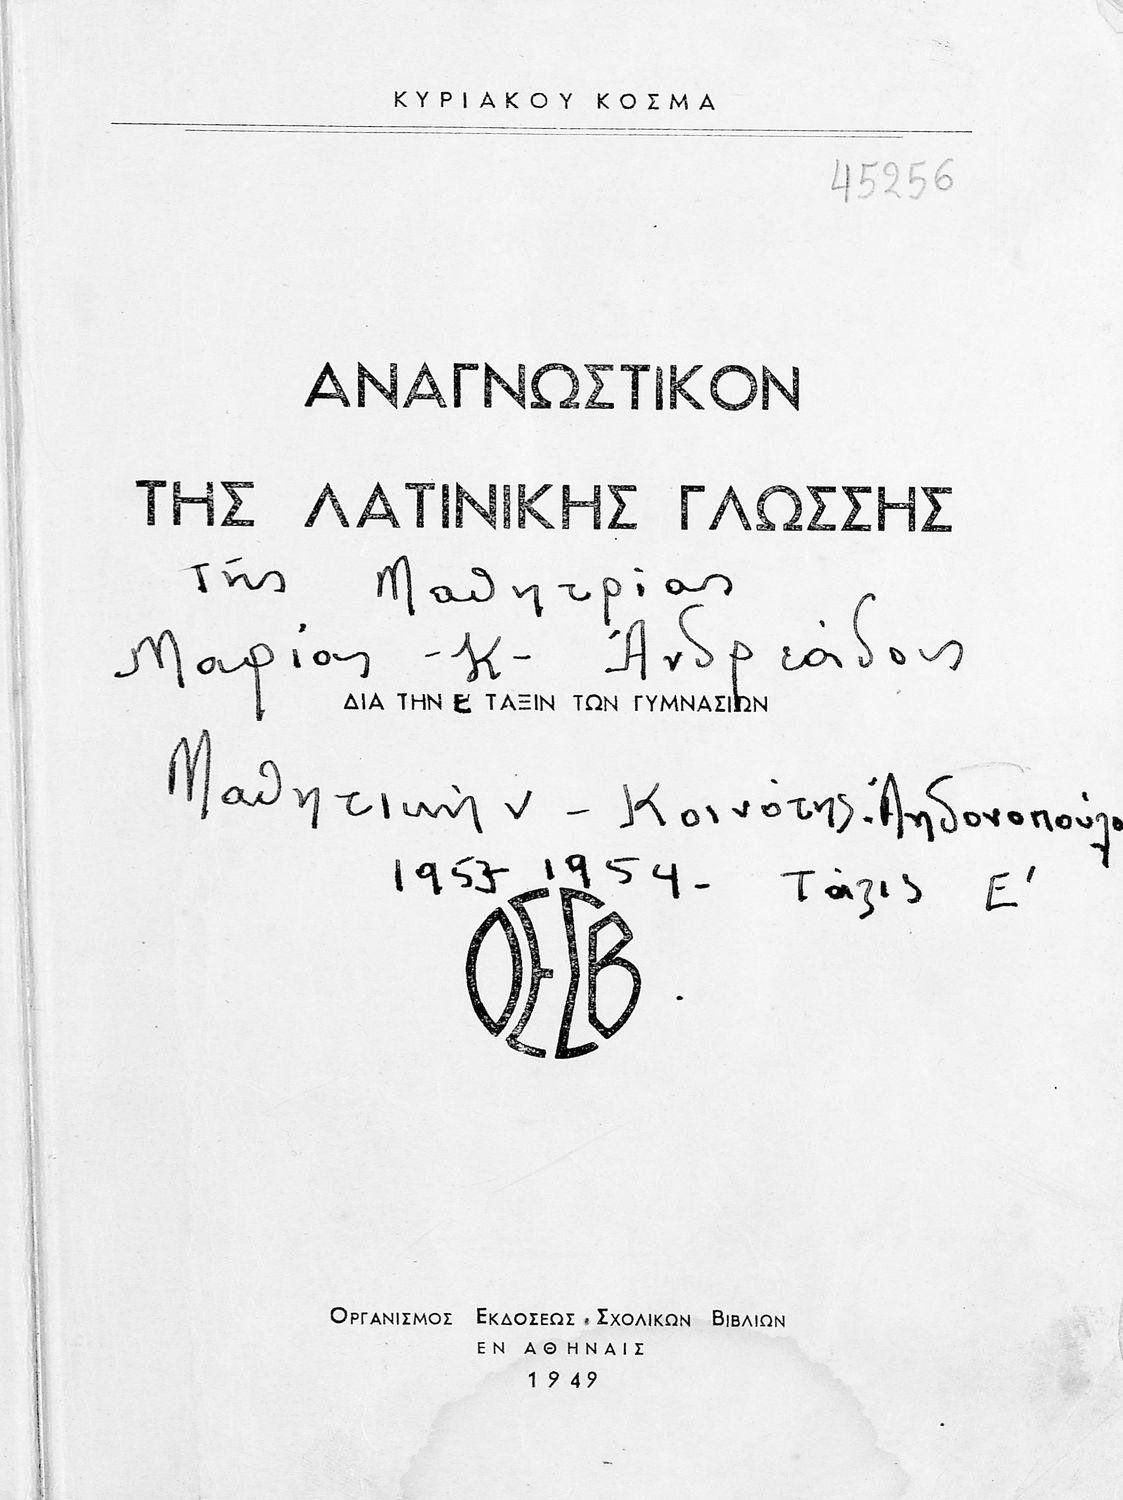 ΚΥΡΙΑΚΟΥ ΚΟΣΜΑ
45256
ΑΝΑΓΝΩΣΤΙΚΟΝ
ΤΗΣ ΛΑΤΙΝΙΚΗΣ ΓΛΩΣΣΗΣ
Τῆς Μαθητρίας
Μαρίας -Κ- Ἀνδρεάδους
ΔΙΑ ΤΗΝ Ε ΤΑΞΙΝ ΤΩΝ ΓΥΜΝΑΣΙΩΝ
Μαθητικὴν - Κοινότης Ἀηδονοπούλο
1953-1954- Τάξις Ε'
ΟΕΣΒ
ΟΡΓΑΝΙΣΜΟΣ ΕΚΔΟΣΕΩΣ ΣΧΟΛΙΚΩΝ ΒΙΒΛΙΩΝ
ΕΝ ΑΘΗΝΑΙΣ
1949